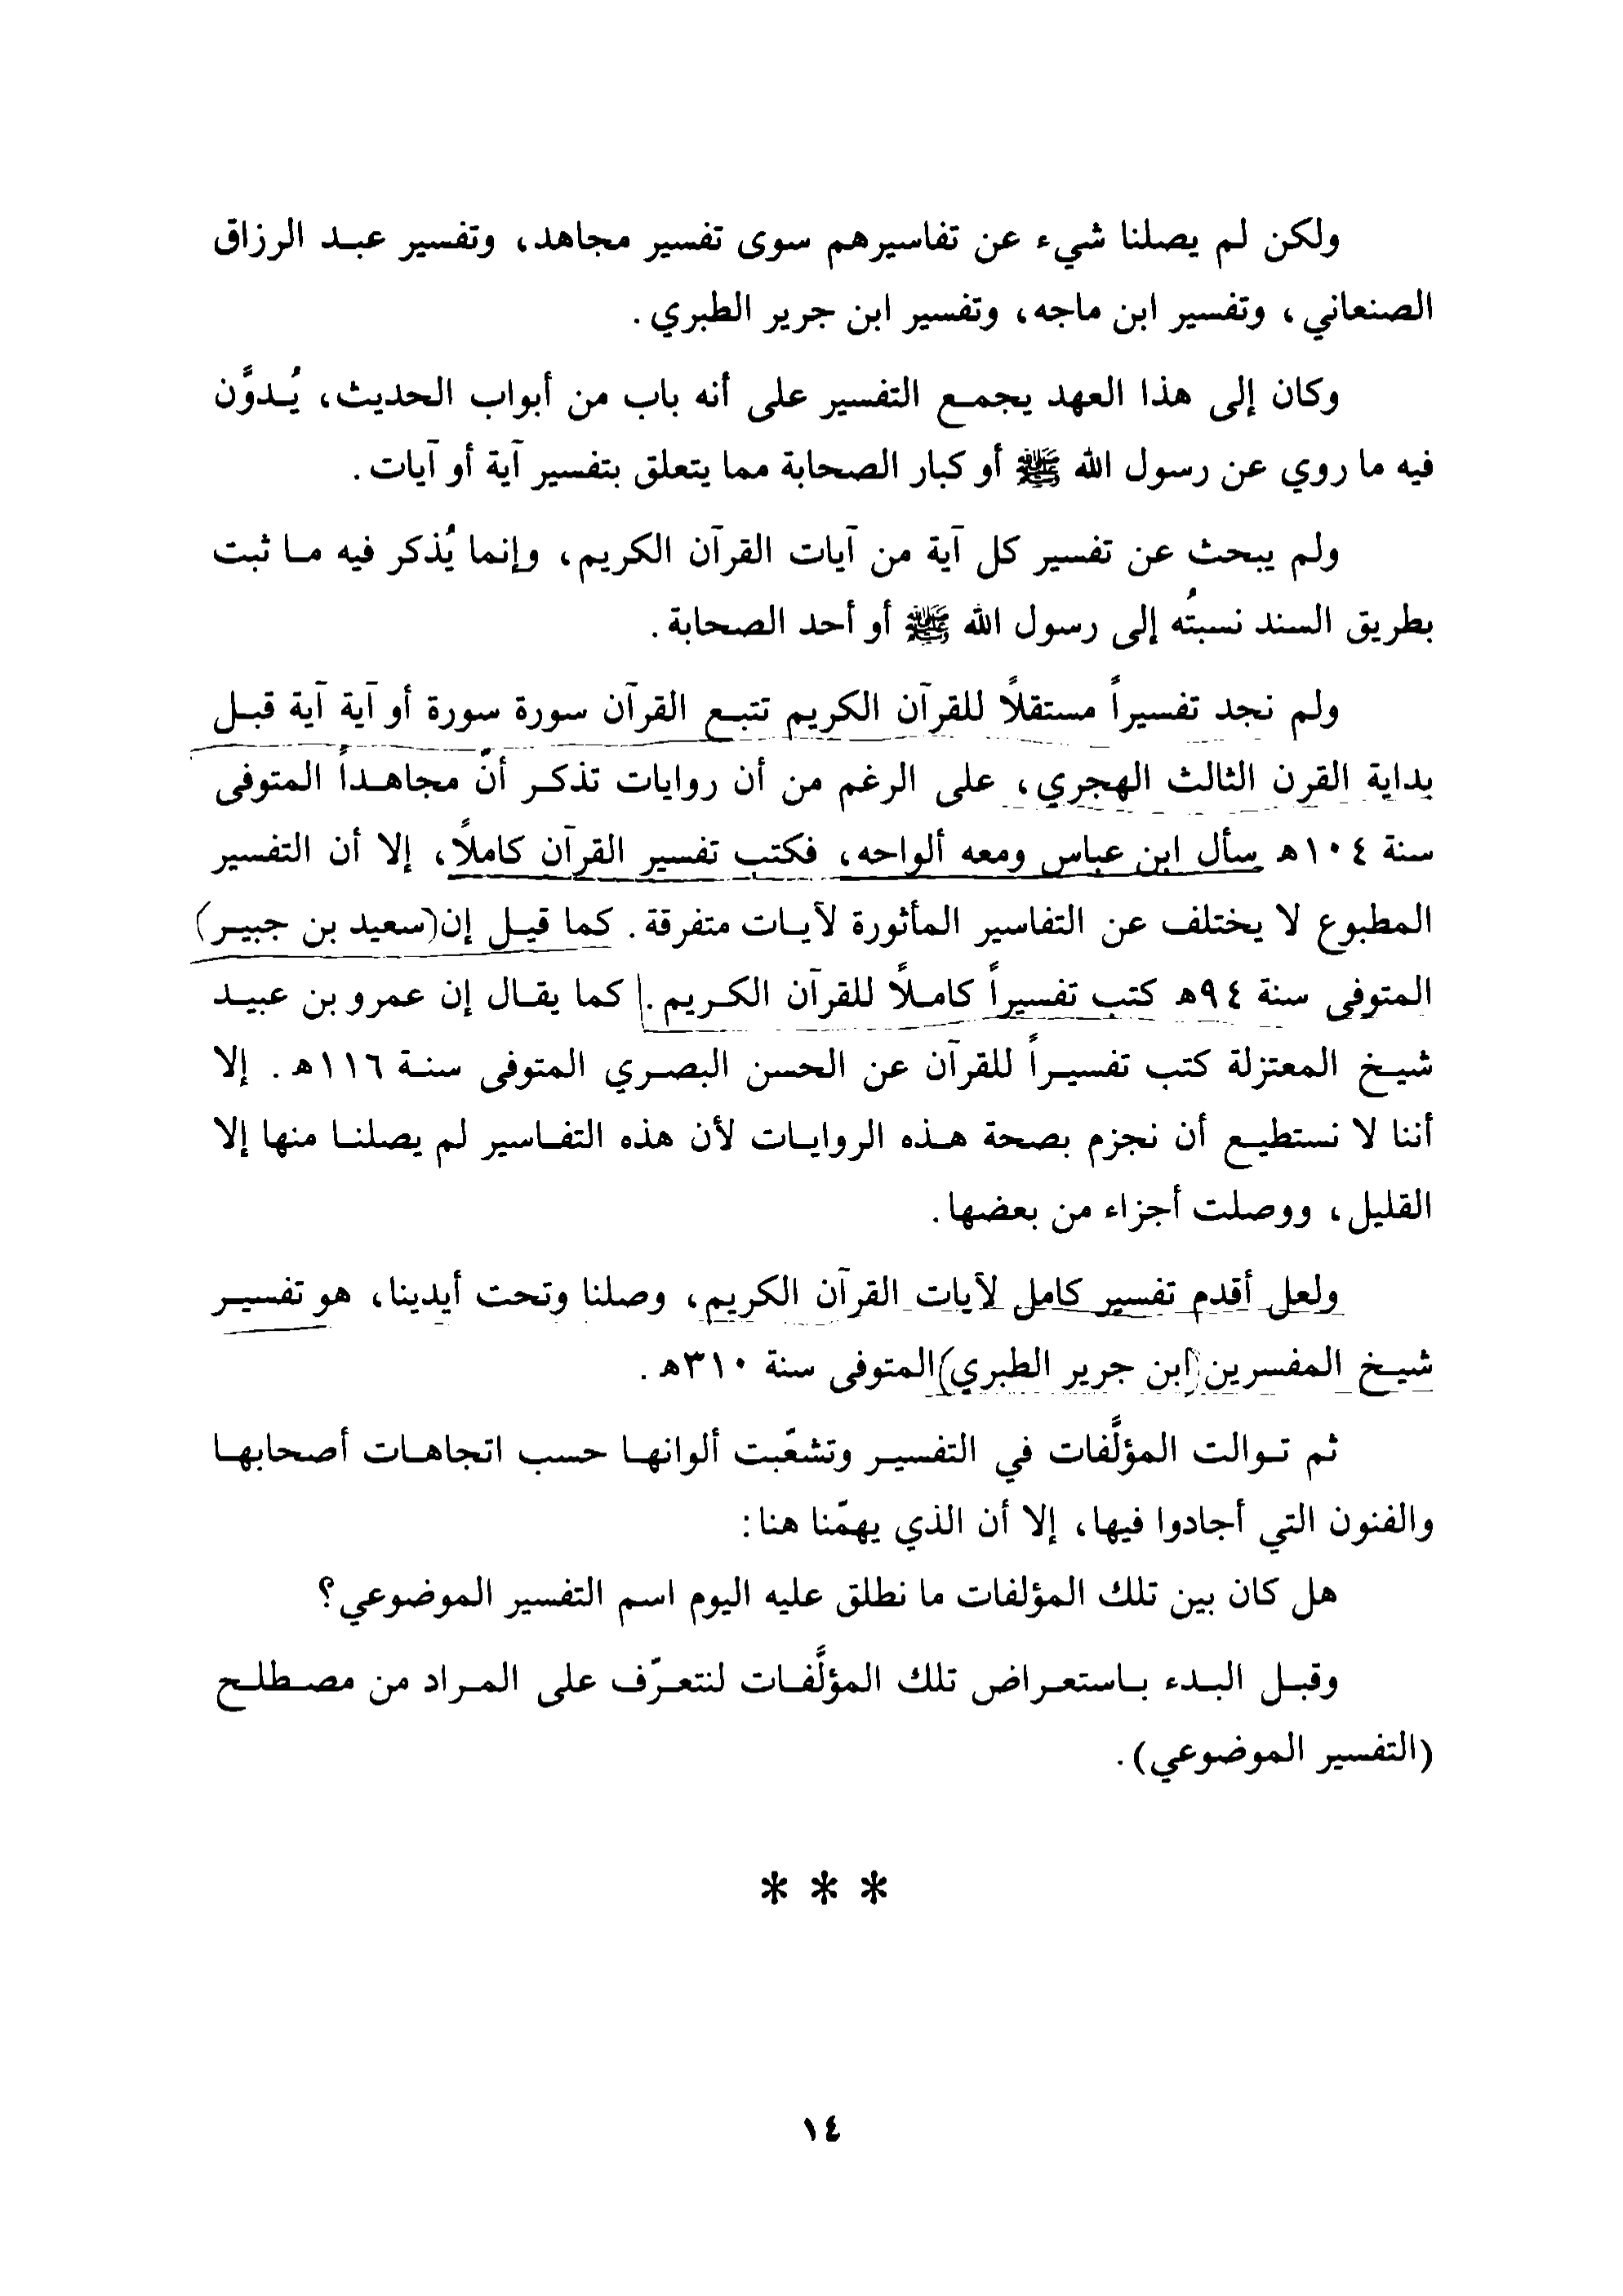 ولكن لم يصلنا شيء عن تفاسيرهم سوى تفسير مجاهد، وتفسير عبد الرزاق
الصنعاني، وتفسير ابن ماجه، وتفسير ابن جرير الطبري.
وكان إلى هذا العهد يجمع التفسير على أنه باب من أبواب الحديث، يُدوَّن
فيه ما روي عن رسول الله ﷺ أو كبار الصحابة مما يتعلق بتفسير آية أو آيات.
ولم يبحث عن تفسير كل آية من آيات القرآن الكريم، وإنما يُذكر فيه ما ثبت
بطريق السند نسبتُه إلى رسول الله ﷺ أو أحد الصحابة.
ولم نجد تفسيراً مستقلاً للقرآن الكريم تتبع القرآن سورة سورة أو آية آية قبل
بداية القرن الثالث الهجري، على الرغم من أن روايات تذكر أنّ مجاهداً المتوفى
سنة ١٠٤هـ سأل ابن عباس ومعه ألواحه، فكتب تفسير القرآن كاملاً، إلا أن التفسير
المطبوع لا يختلف عن التفاسير المأثورة لآيات متفرقة. كما قيل إن (سعيد بن جبير)
المتوفى سنة ٩٤هـ كتب تفسيراً كاملاً للقرآن الكريم. كما يقال إن عمرو بن عبيد
شيخ المعتزلة كتب تفسيراً للقرآن عن الحسن البصري المتوفى سنة ١١٦هـ. إلا
أننا لا نستطيع أن نجزم بصحة هذه الروايات لأن هذه التفاسير لم يصلنا منها إلا
القليل، ووصلت أجزاء من بعضها.
ولعل أقدم تفسير كامل لآيات القرآن الكريم، وصلنا وتحت أيدينا، هو تفسير
شيخ المفسرين (ابن جرير الطبري) المتوفى سنة ٣١٠هـ.
ثم توالت المؤلَّفات في التفسير وتشعّبت ألوانها حسب اتجاهات أصحابها
والفنون التي أجادوا فيها، إلا أن الذي يهمّنا هنا:
هل كان بين تلك المؤلفات ما نطلق عليه اليوم اسم التفسير الموضوعي؟
وقبل البدء باستعراض تلك المؤلَّفات لنتعرّف على المراد من مصطلح
(التفسير الموضوعي).
* * *
١٤